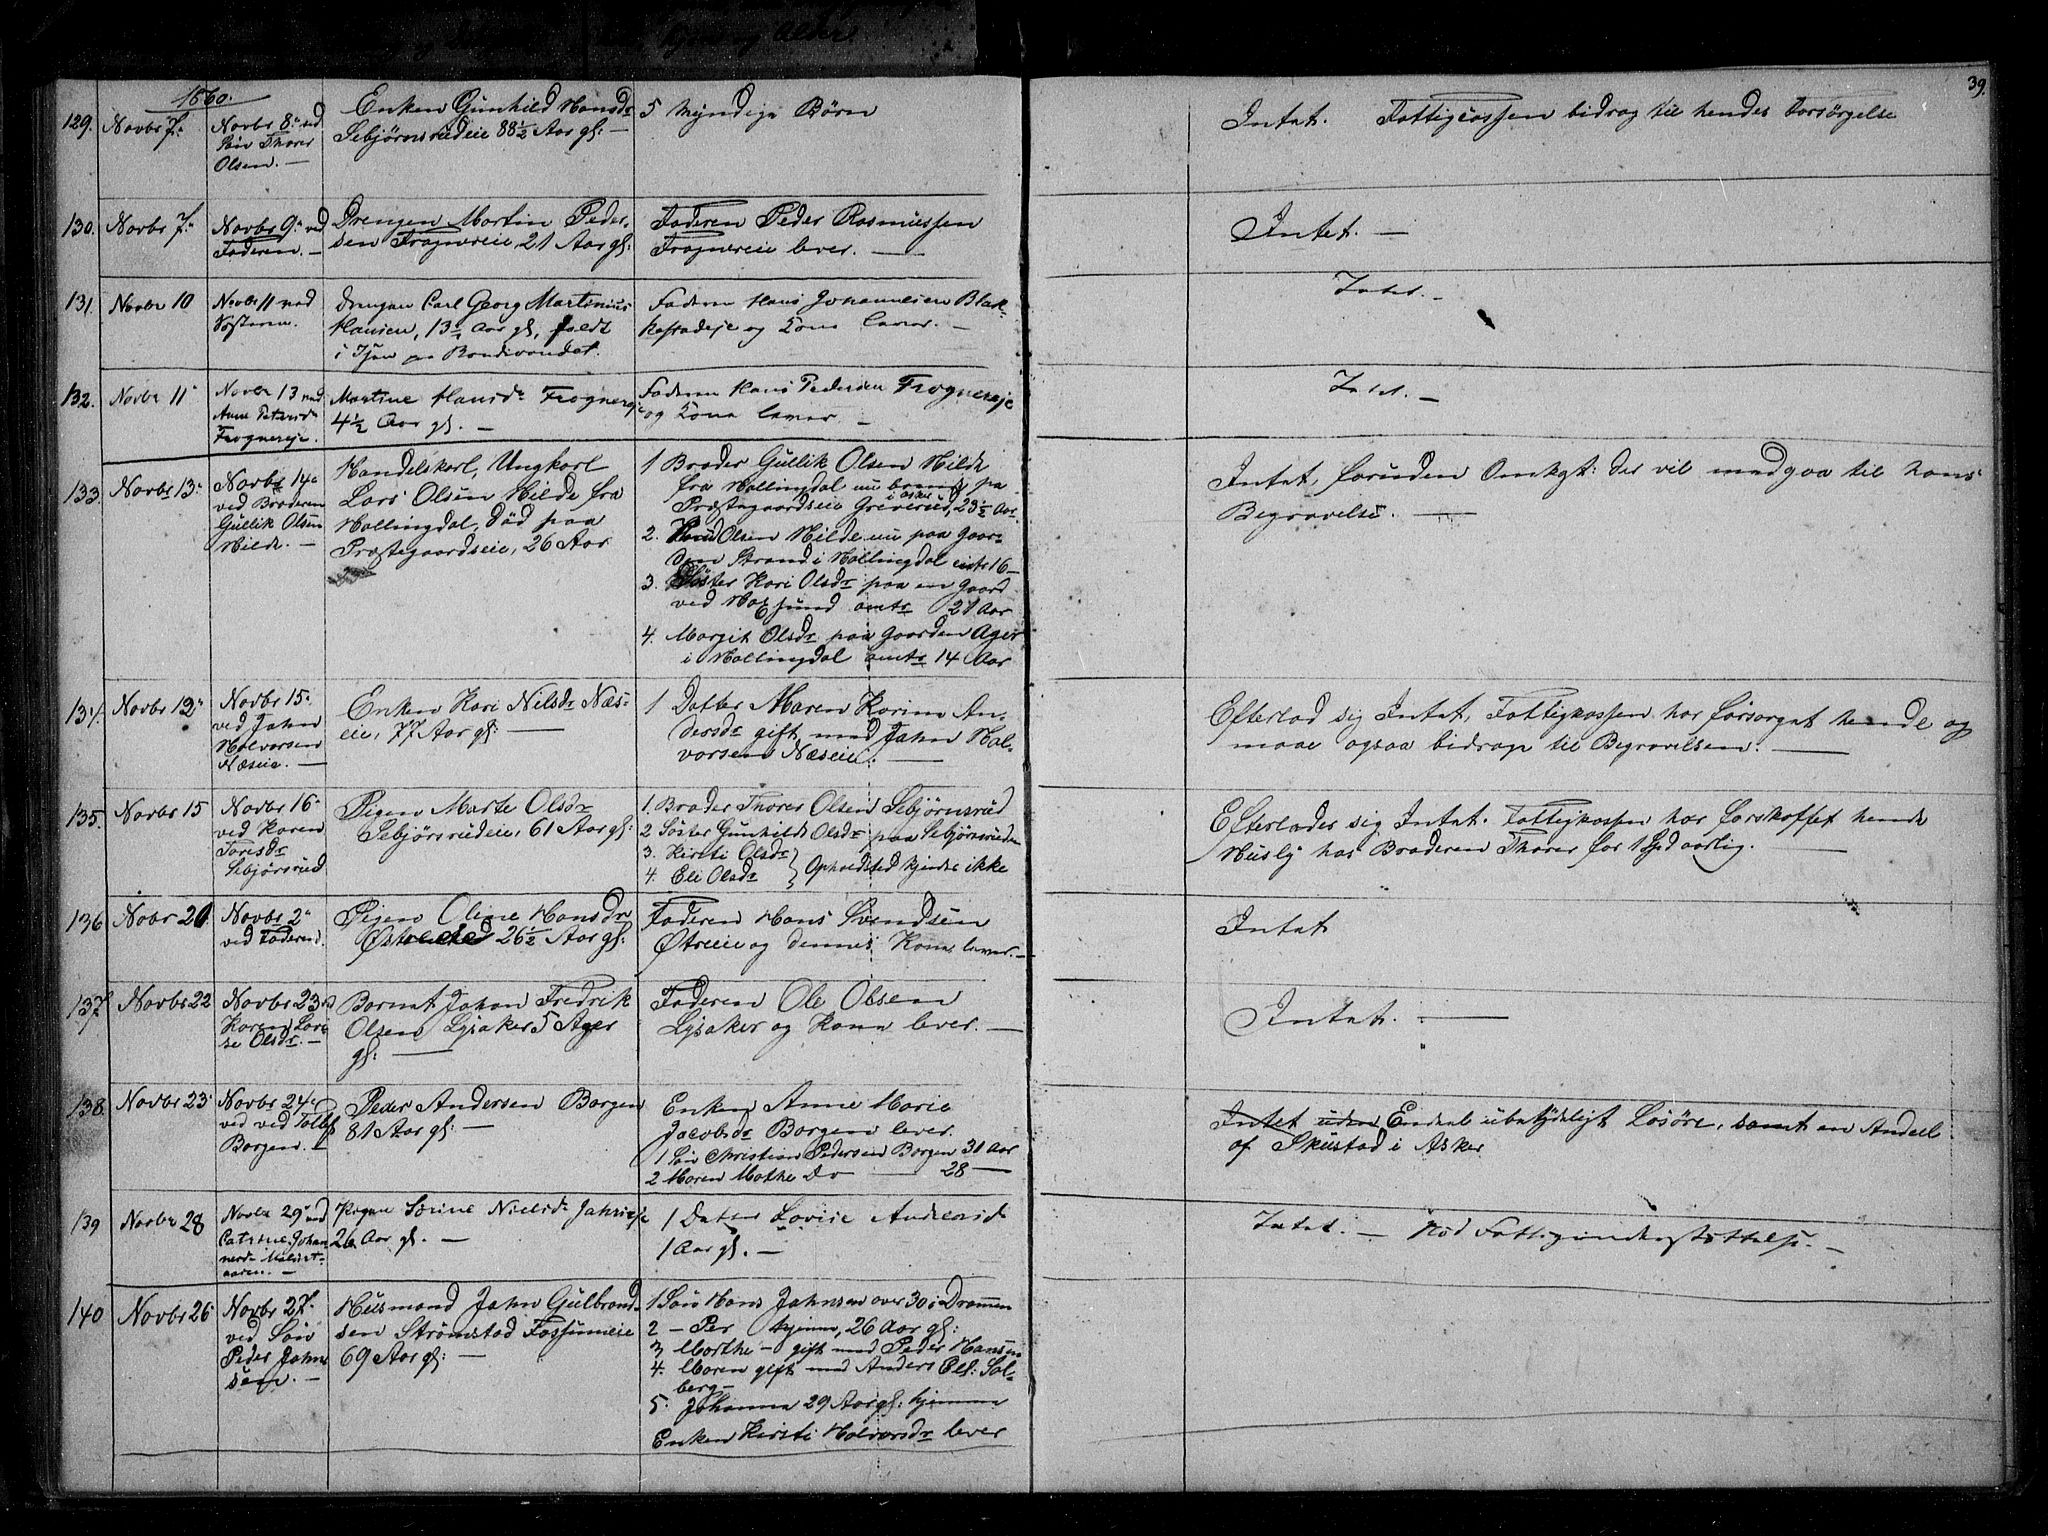 39.
1860.
129. Novbr 7de Novbr 8de ved Søn Thorer Olsen. —
Enken Gunhild Hansdr
Sebjørnsrudeie 88½ Aar gl: —
5 Myndige Børn
Intet. Fattigcassen bidrog til hendes Forsørgelse
130. Novbr 7de Novbr 9de ved Faderen. —
Drengen Martin Peder-
sen Frognereie, 21 Aar gl:
Faderen Peder Rasmussen
Frognereie lever. —
Intet. —
131. Novbr 10 Novbr 11 ved
Drengen Carl Georg Martinius
Hansen, 13½ Aar gl, født
i
Faderen Hans Johannesen
og Kone lever. —
Intet. —
132. Novbr 11 Novbr 13 ved Anne Petersdr Frognereje.
Martine Hansdr Frognereje
4½ Aar gl. —
Faderen Hans Pedersen Frognereje
og Kone lever —
Intet. —
133. Novbr 13de Novbr 14de ved Broderen Gullik Olsen Hilde. —
Handelskarl, Ungkarl
Lars Olsen Hilde fra
Hallingdal, død paa
Præstegaardseie, 26 Aar
1 Broder Gullik Olsen Hilde
fra Hallingdal nu paa
Præstegaardseie Greverud i Asker, 23½ Aar.
2. Knud Olsen Hilde nu paa Gaar-
den Strand i Hallingdal 16 —
3. Søster Kari Olsdr paa en Gaard
ved Hoksund omtr 21 Aar
4. Margit Olsdr paa Gaarden Ager
i Hallingdal omtr 14 Aar
Intet, foruden Omkgt: der vil medgaa til hans
Begravelse. —
134. Novbr 12de Novbr 15de ved John Halvorsen Næseie. —
Enken Kari Nilsdr Næs-
eie, 77 Aar gl: —
1 Datter Maren Karine An-
dersdr gift med John Hal-
vorsen Næseie. —
Efterlod sig Intet, Fattigkassen har forsørget hende og
maae ogsaa bidrage til Begravelsen. —
135. Novbr 15 Novbr 16de ved Karen Toresdr Sebjørsrud
Pigen Marte Olsdr
Sebjørsrudeie, 61 Aar gl:
1. Broder Thorer Olsen Sebjørnsrud
2 Søster Gunhild Olsdr paa Sebjørnsrudeie
3. Kirsti Olsdr
4. Eli Olsdr } Opholdsted kjendes ikke
Efterlader sig Intet. Fattigkassen har forskaffet hende
Husly hos Broderen Thorer for 1 Spd aarlig. —
136 Novbr 20 Novbr 2 ved Faderen.
Pigen Oline Hansdr
26½ Aar gl:
Faderen Hans Svendsen
Øtreie og dennes Kone lever. —
Intet
137. Novbr 22 Novbr 23 ved Karen Lovi- se Olsdr. —
Barnet Johan Fredrik
Olsen Lysaker 5 Ager
gl: —
Faderen Ole Olsen
Lysaker og Kone lever. —
Intet. —
138. Novbr 23de Novbr 24de ved ved Tollef Borgen. —
Peder Andersen Borgen
81 Aar gl: —
Enken Anne Marie
Jacobsdr Borgen lever.
1 Søn Christian Pedersen Borgen 30 Aar
2 Maren Mathea Do — 28 —
Intet uden Endeel ubetydeligt Løsøre, samt en Andeel
af Skustad i Asker
139 Novbr 28 Novbr 29de ved Catrine Johan-
Pigen Serine Nielsdr
26 Aar gl. —
1 Datter Lovise Andersdr
1 Aar gl. —
Intet. — Nød Fattigunderstøttelse. —
140 Novbr 26de Novbr 27de ved Søn Peder John- sen. —
Husmand John Gulbrand-
sen Strømstad Fossumeie
69 Aar gl: —
1 Søn Hans Johnsen over 30 i Drammen
2 — Per hjemme, 26 Aar gl:
3 Marthe — gift med Peder Hansen
4. Maren gift med Anders Sol-
berg —
5. Johanna 29 Aar gl: hjemme
Enken Kirsti Halvorsdr lever